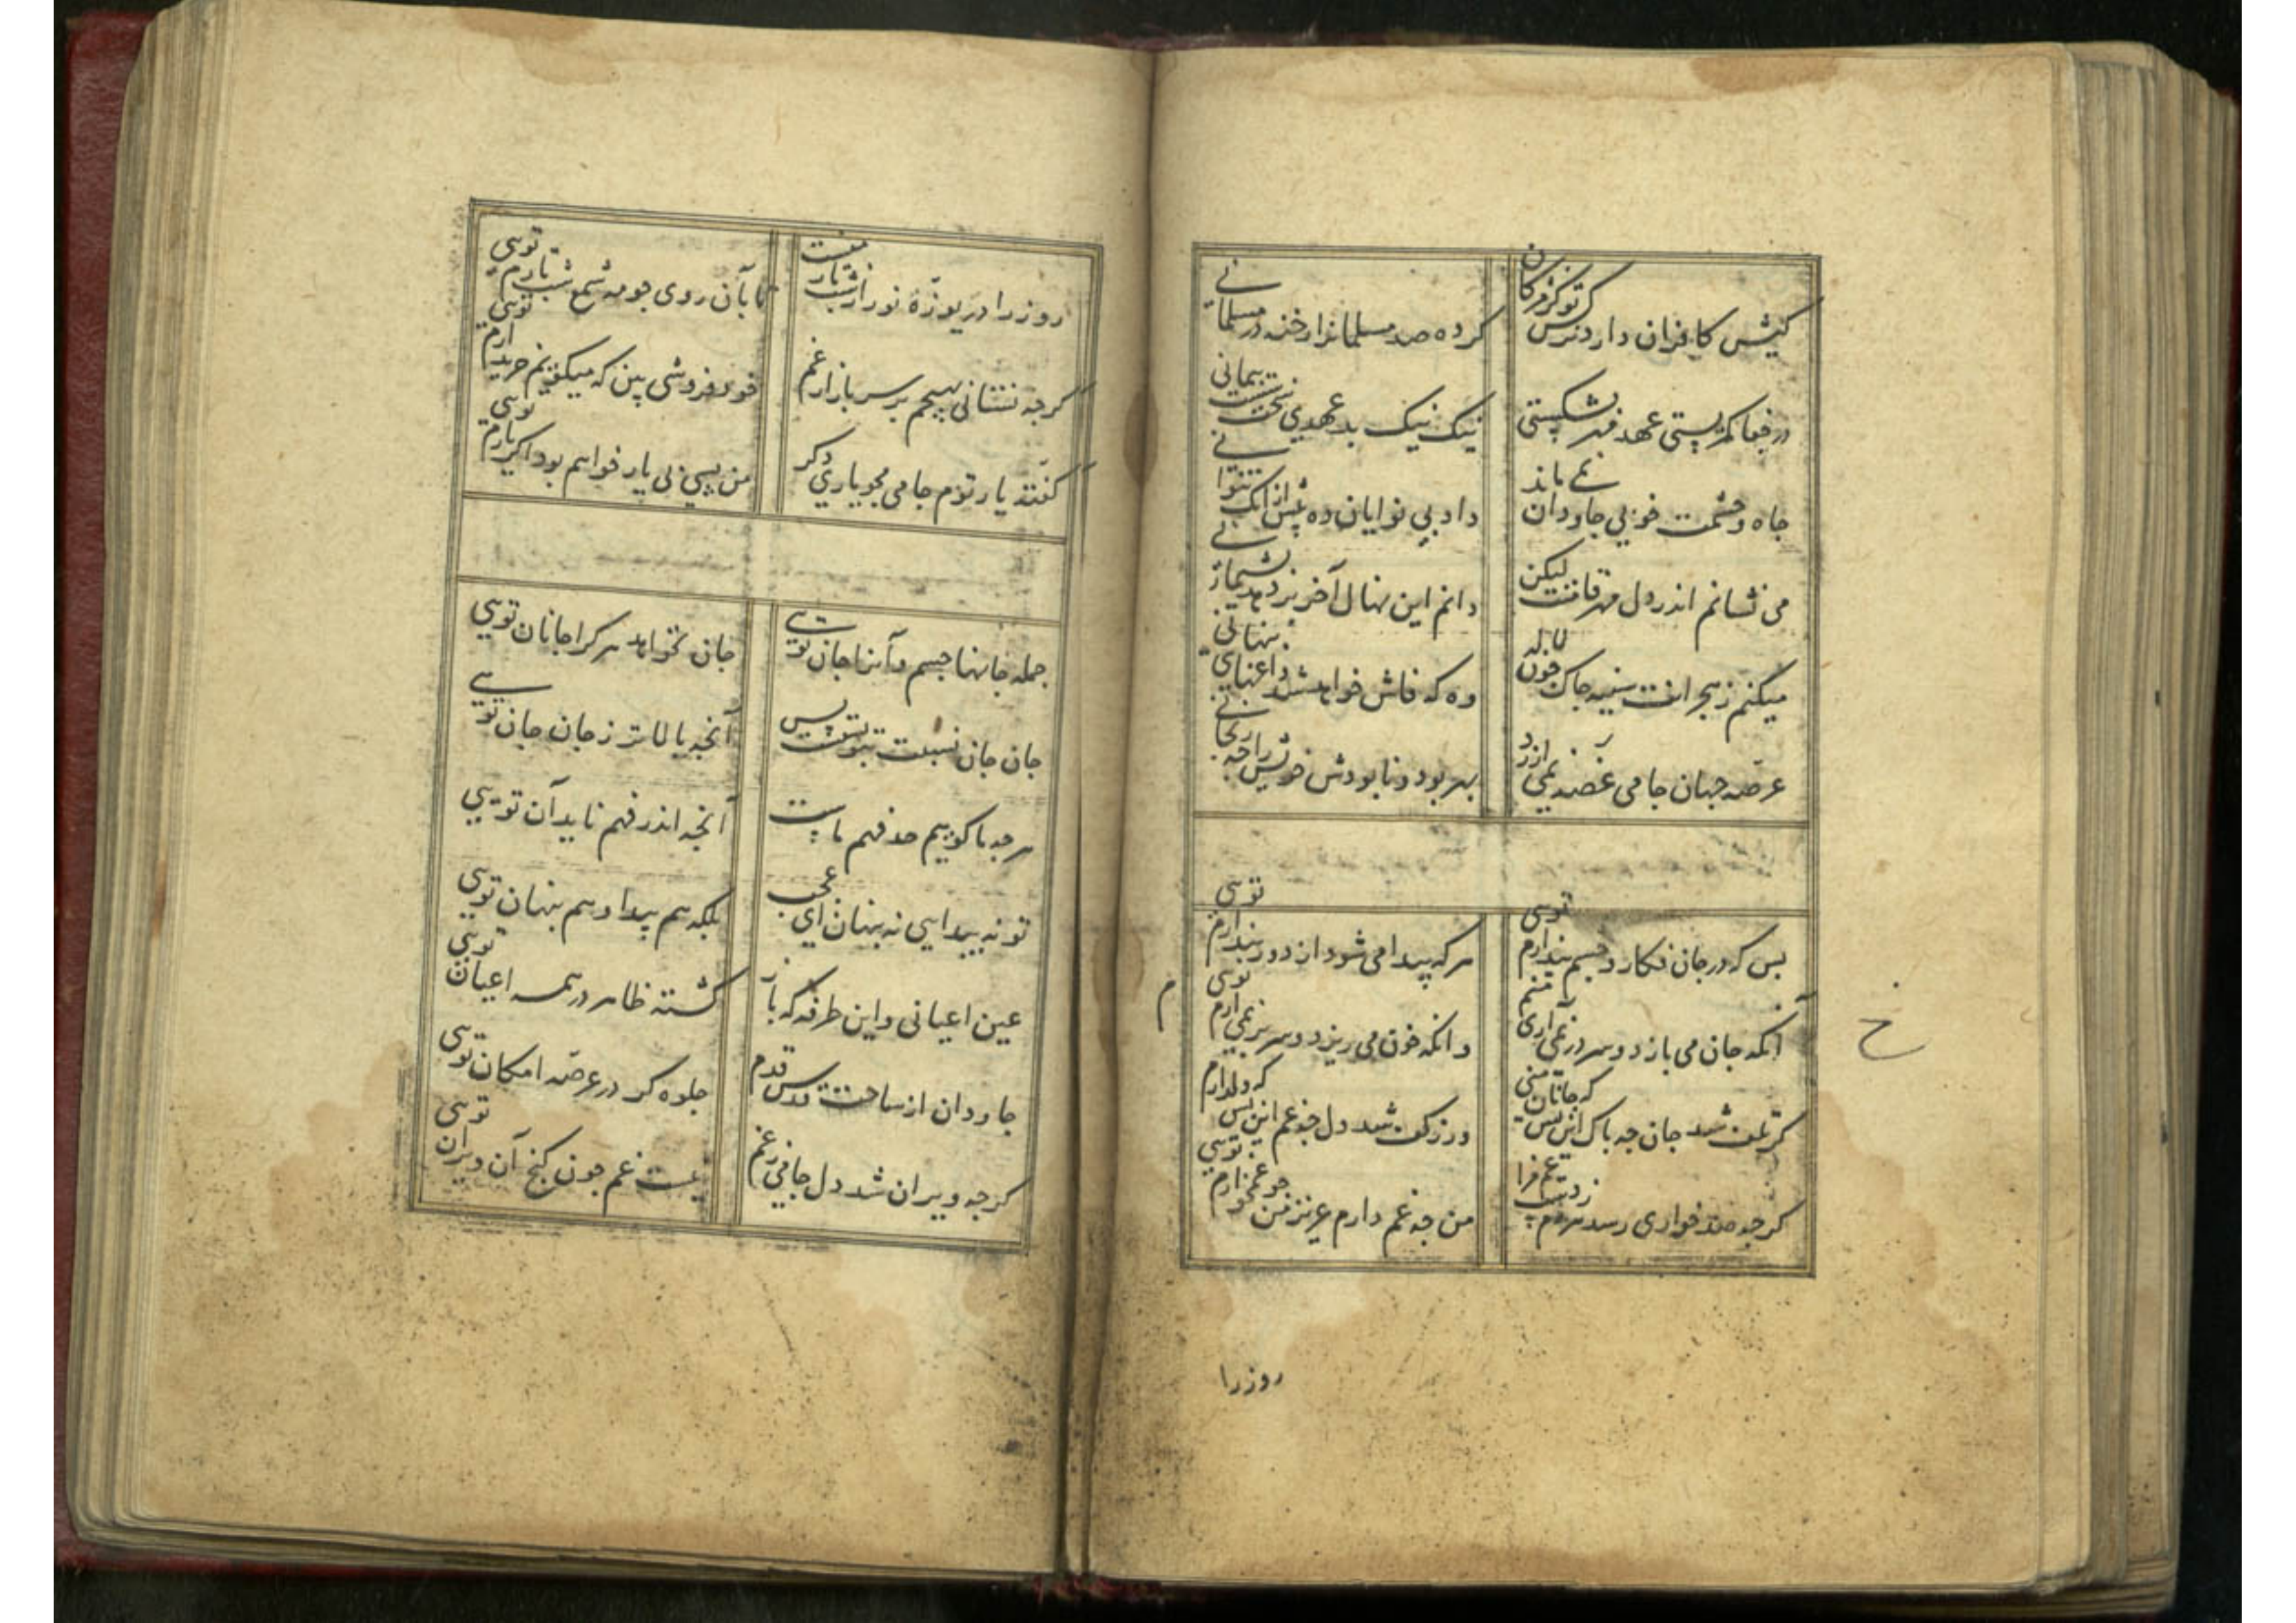 کیش کافران دارد نرکس تو کز مژکان
کرده صد مسلمانرا رخنه در مسلمانی
در جفا کمر بستی عهد مهر بشکستی
نیک نیک بد عهدی سخت سست پیمانی
جاه و حشمت خوبی جاودان نمی ماند
داد بی نوایان ده پیش ازانک نتوانی
می نشانم اندر دل مهر قامتت لیکن
دانم این نهال آخر بر دهد پشیمانی
میکنم ز هجرانت سینه چاک چون لاله
وه که فاش خواهد شد داغهای پنهانی
عرصه جهان جامی غصه نمی ارزد
بهر بود و نابودش خویش را چه رنجانی
بس که در جان فکار و چشم بیدارم تویی
هرکه پیدا می شود از دور پندارم تویی
آنکه جان می بازد و سر در نمی آری منم
وانکه خون می ریزد و سر بر نمی آرم تویی
کر تلف شد جان چه باک این بس که جانان منی
ور ز کف شد دل چه غم این بس که دلدارم تویی
کرچه صد خواری رسد هر دم ز دست غم مرا
من چه غم دارم عزیز من چو غمخوارم تویی
خ
م
روز را
روز را دریوزه نور از شب تار منست
تا بآن روی جو مه شمع شب تارم تویی
کرچه نستانی بهیچم بر سر بازار غم
خود فروشی بین که میکویم خریدارم تویی
کفته یار توم جامی مجو یاری دکر
من بسی بی یار خواهم بود اکر یارم تویی
جمله جانها جسم و آنرا جان تویی
جان نخواهد هر کرا جانان تویی
جان جان نسبت بتو پست پس
آنچه بالاتر ز جان جان تویی
هرچه ما کوییم حد فهم ماست
آنچه اندر فهم ناید آن تویی
تو نه پیدایی نه پنهان ای عجب
بلکه هم پیدا و هم پنهان تویی
عین اعیانی و این طرفه که باز
کشته ظاهر در همه اعیان تویی
جاودان از ساحت قدس قدم
جلوه کر در عرصه امکان تویی
کرچه ویران شد دل جامی ز غم
نیست غم چون کنج آن ویران تویی